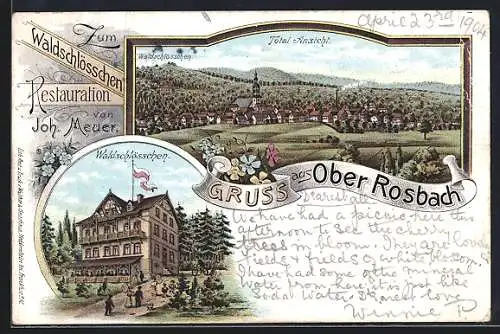 April 23rd 1904
Zum
Waldschlösschen
Restauration
von
Joh. Meuer.
Total-Ansicht.
Waldschlösschen
Waldschlösschen.
GRUSS aus Ober Rosbach
Dearest all
We have had a picnic here this
afternoon to see the cherry
trees in bloom. They are lovely
fields & fields of white blossom.
I have had some of the mineral
water from here, it is just like
Soda Water. Dearest love
Winnie